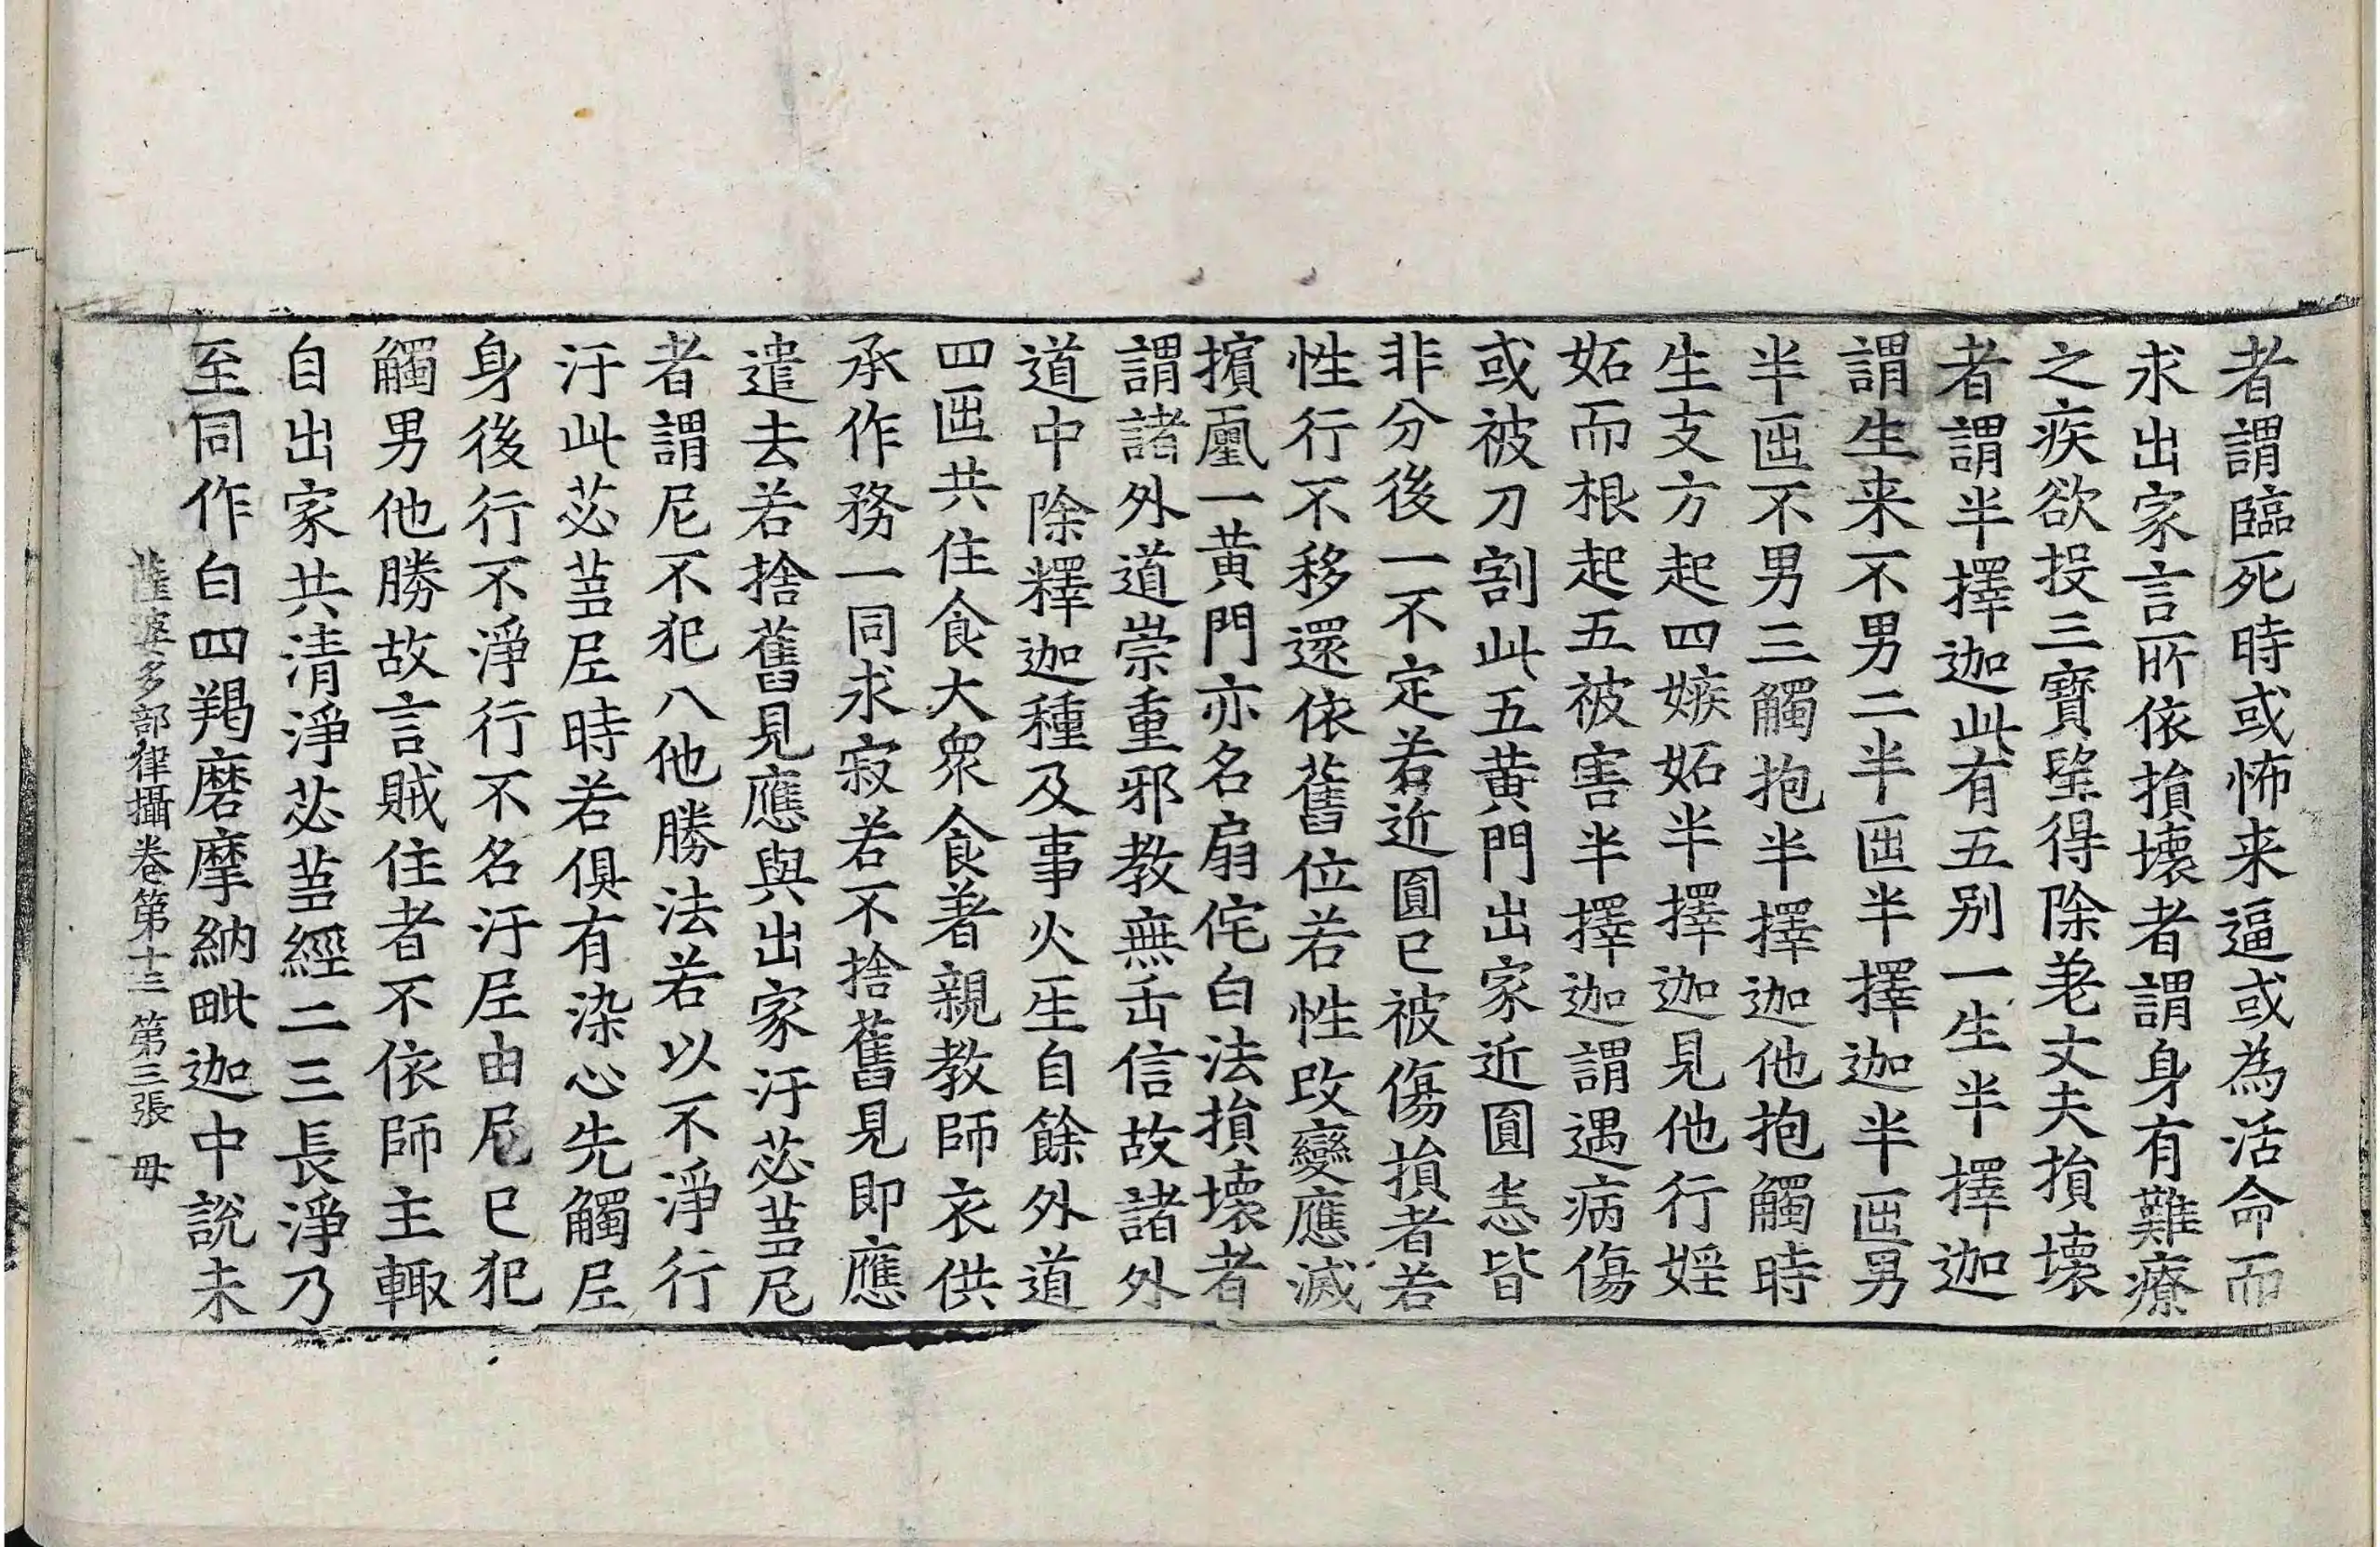 者謂臨死時或怖来逼或為活命而
求出家言所依損壞者謂身有難療
之疾欲投三寶望得除差丈夫損壞
者謂半擇迦此有五别一生半擇迦
謂生来不男二半𠥱半擇迦半𠥱男
半𠥱不男三觸抱半擇迦他抱觸時
生支方起四嫉妬半擇迦見他行婬
妬而根起五被害半擇迦謂遇病傷
或被刀割此五黄門出家近圓恙皆
非分後一不定若近圓已被傷損者若
性行不移還依舊位若性改變應滅
擯㢆一黄門亦名扇侘白法損壞者
謂諸外道崇重邪教無缶信故諸外
道中除釋迦種及事火𤯔自餘外道
四𠥱共住食大衆食著親教師衣供
承作務一同求寂若不捨舊見即應
遣去若捨舊見應與出家汙苾蒭尼
者謂尼不犯八他勝法若以不淨行
汙此苾蒭𡰱時若俱有染心先觸𡰱
身後行不淨行不名汙𡰱由尼已犯
觸男他勝故言賊住者不依師主輙
自出家共清淨苾蒭經二三長淨乃
至同作白四羯磨摩納毗迦中說未
薩婆多部律攝卷第十三 第三張 毋